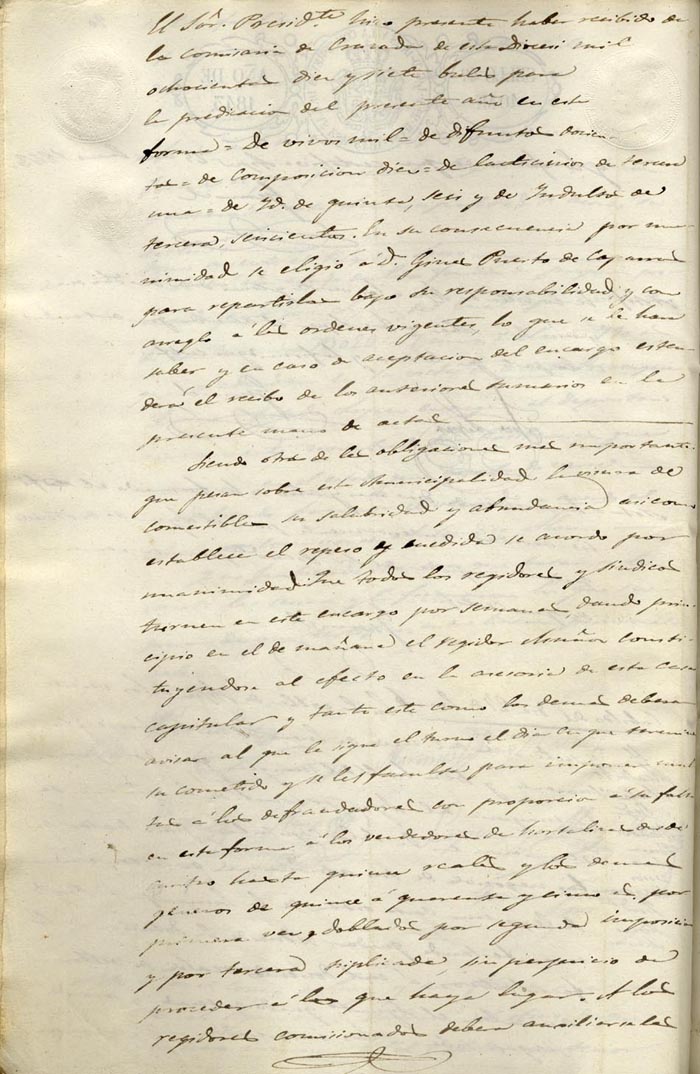 El Sor. Presidte. hizo presente haber recibido de
la Comisaria de Cruzada de esta Diocesi mil
ochocientas diez y siete bulas para
la predicacion del presente año en esta
forma = De vivos mil = de difuntos docien
tas = de composicion diez = de lacticinios de tercera
una = de Id. de quinta, seis y de Indulto de
tercera, seiscientas. En su consecuencia por una
nimidad se eligió á D. Gines Puerto de
para repartirlas bajo su responsabilidad y con
arreglo á las ordenes vigentes, lo que se le hará
saber y en caso de aceptacion del encargo esten
derá el recibo de los anteriores sumarios en la
presente mano de actas
Siendo otra de las obligaciones mas importantes
que pesan sobre esta Municipalidad la visura de
comestibles su salubridad y abundancia asi como
establece el repeso y medida se acordo por
unanimidad: Que todos los regidores y sindicos
turnen en este encargo por semanas, dando prin
cipio en el de mañana el regidor consti
tuyendose al efecto en la asesoria de esta casa
capitular y tanto este como los demas deberan
avisar al que le sigue el turno el dia en que termine
su cometido y se les faculta para imponer mul
tas á los defraudadores con proporcion á su falta
en esta forma á los vendedores de hortaliza desde
cuatro hasta quince reales y los demas
generos de quince á quarenta y cinco id. por
primera vez, doblados por segunda imposicion
y por tercera triplicada, sin perjuicio de
proceder á lo que haya lugar. A los
regidores comisionados deberan auxiliar las